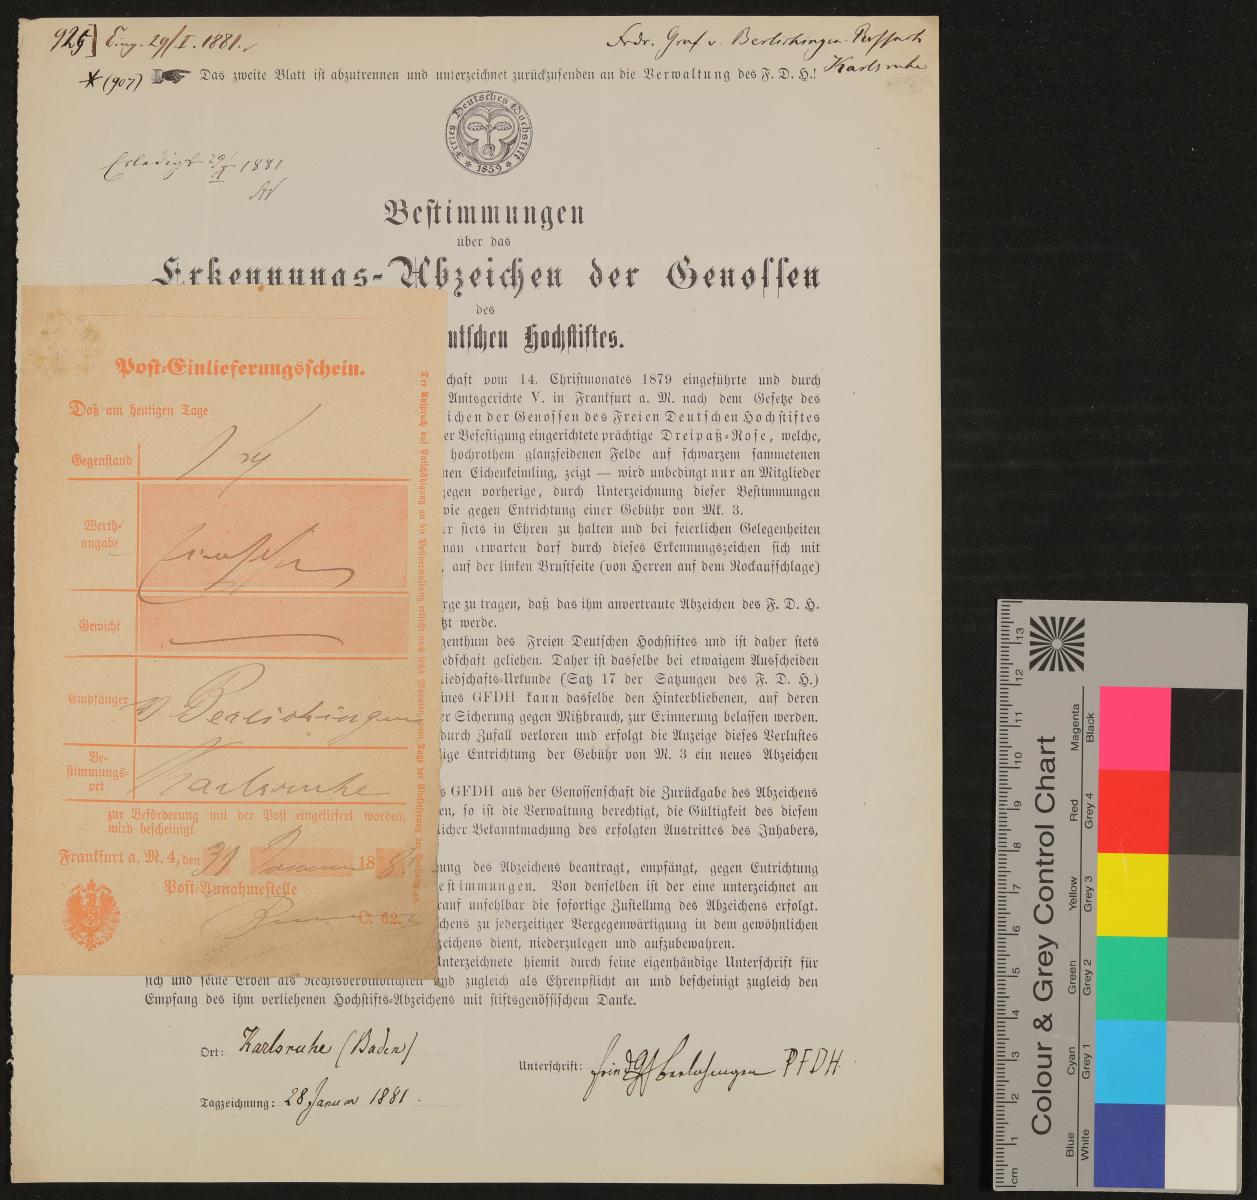 925] Eing. 29/I. 1881.
Frdr. Graf v. Berlichingen-Rossach
Karlsruhe
* (907) Das zweite Blatt ist abzutrennen und unterzeichnet zurückzusenden an die Verwaltung des F. D. H.!
Freies Deutsches Hochstift
* 1859 *
Erledigt 29/I 1881
Bestimmungen
über das
Erkennungs-Abzeichen der Genossen
des
utschen Hochstiftes.
chaft vom 14. Christmonates 1879 eingeführte und durch
Amtsgerichte V. in Frankfurt a. M. nach dem Gesetze des
ichen der Genossen des Freien Deutschen Hochstiftes
er Befestigung eingerichtete prächtige Dreipaß-Rose, welche,
hochrothem glanzseidenen Felde auf schwarzem sammetenen
nen Eichenkeimling, zeigt — wird unbedingt nur an Mitglieder
gegen vorherige, durch Unterzeichnung dieser Bestimmungen
wie gegen Entrichtung einer Gebühr von Mk. 3.
er stets in Ehren zu halten und bei feierlichen Gelegenheiten
man erwarten darf durch dieses Erkennungszeichen sich mit
, auf der linken Brustseite (von Herren auf dem Rockaufschlage)
rge zu tragen, daß das ihm anvertraute Abzeichen des F. D. H.
tzt werde.
genthum des Freien Deutschen Hochstiftes und ist daher stets
iedschaft geliehen. Daher ist dasselbe bei etwaigem Ausscheiden
liedschafts-Urkunde (Satz 17 der Satzungen des F. D. H.)
ines GFDH kann dasselbe den Hinterbliebenen, auf deren
er Sicherung gegen Mißbrauch, zur Erinnerung belassen werden.
durch Zufall verloren und erfolgt die Anzeige dieses Verlustes
lige Entrichtung der Gebühr von M. 3 ein neues Abzeichen
s GFDH aus der Genossenschaft die Zurückgabe des Abzeichens
en, so ist die Verwaltung berechtigt, die Gültigkeit des diesem
licher Bekanntmachung des erfolgten Austrittes des Inhabers,
ung des Abzeichens beantragt, empfängt, gegen Entrichtung
estimmungen. Von denselben ist der eine unterzeichnet an
rauf unfehlbar die sofortige Zustellung des Abzeichens erfolgt.
chens zu jederzeitiger Vergegenwärtigung in dem gewöhnlichen
zeichens dient, niederzulegen und aufzubewahren.
Unterzeichnete hiemit durch seine eigenhändige Unterschrift für
sich und seine Erben als Rechtsverbindlichkeit und zugleich als Ehrenpflicht an und bescheinigt zugleich den
Empfang des ihm verliehenen Hochstifts-Abzeichens mit stiftsgenössischem Danke.
Ort: Karlsruhe (Baden)
Unterschrift: Berlichingen PFDH.
Tagzeichnung: 28 Januar 1881.
Post-Einlieferungsschein.
Daß am heutigen Tage
Gegenstand
Werth-
angabe
Gewicht
Empfänger v Berlichingen
Be-
stimmungs-
ort Karlsruhe
zur Beförderung mit der Post eingeliefert worden,
wird bescheinigt
Frankfurt a. M. 4, den 31 Januar 188
Post-Annahmestelle
C. 62.
Der Anspruch auf Entschädigung an die Postverwaltung erlischt nach sechs Monaten, vom Tage der Einlieferung der Sendung an.
Colour & Grey Control Chart
Blue Cyan Green Yellow Red Magenta
White Grey 1 Grey 2 Grey 3 Grey 4 Black
cm 1 2 3 4 5 6 7 8 9 10 11 12 13